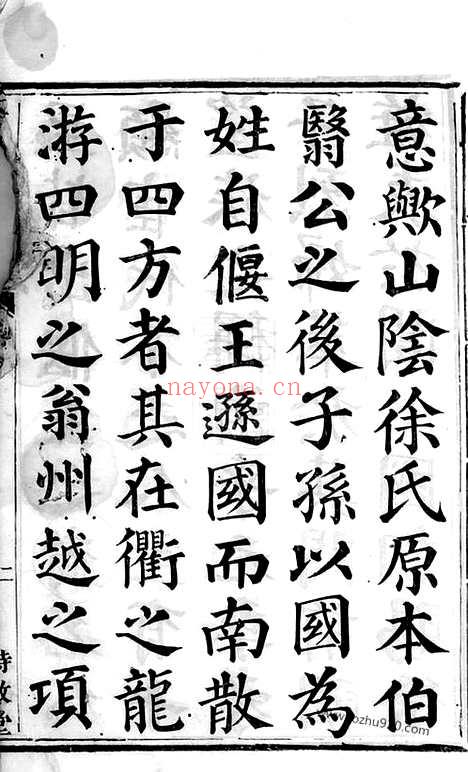 意歟山陰徐氏原本伯
翳公之後子孫以國為
姓自偃王遜國而南散
于四方者其在衢之龍
游四明之翁州越之項
nayona.cn